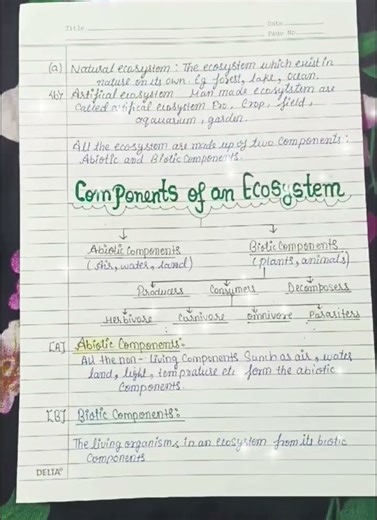 Title
Date
Page No.
(a) Natural ecosystem : The ecosystem which exist in
nature on its own. Eg forest, lake, ocean.
(b) Artifical ecosystem Man made ecosystem are
called artifical ecosystem Ex. Crop, field,
aquauarium, garden.
All the ecosystem are made up of two components :
Abiotic and Biotic Components.
Components of an Ecosystem
Abiotic Components
Biotic Components
(Air, water, land)
(plants, animals)
Producers Consumers Decomposers
Herbivore Carnivore omnivore Parasiters
[A] Abiotic Components:-
All the non-living components Sunch as air, water
land, light, temprature etc form the abiotic
Components.
[B] Biotic Components:-
The living organisms in an ecosystem from its biotic
Components
DELTA